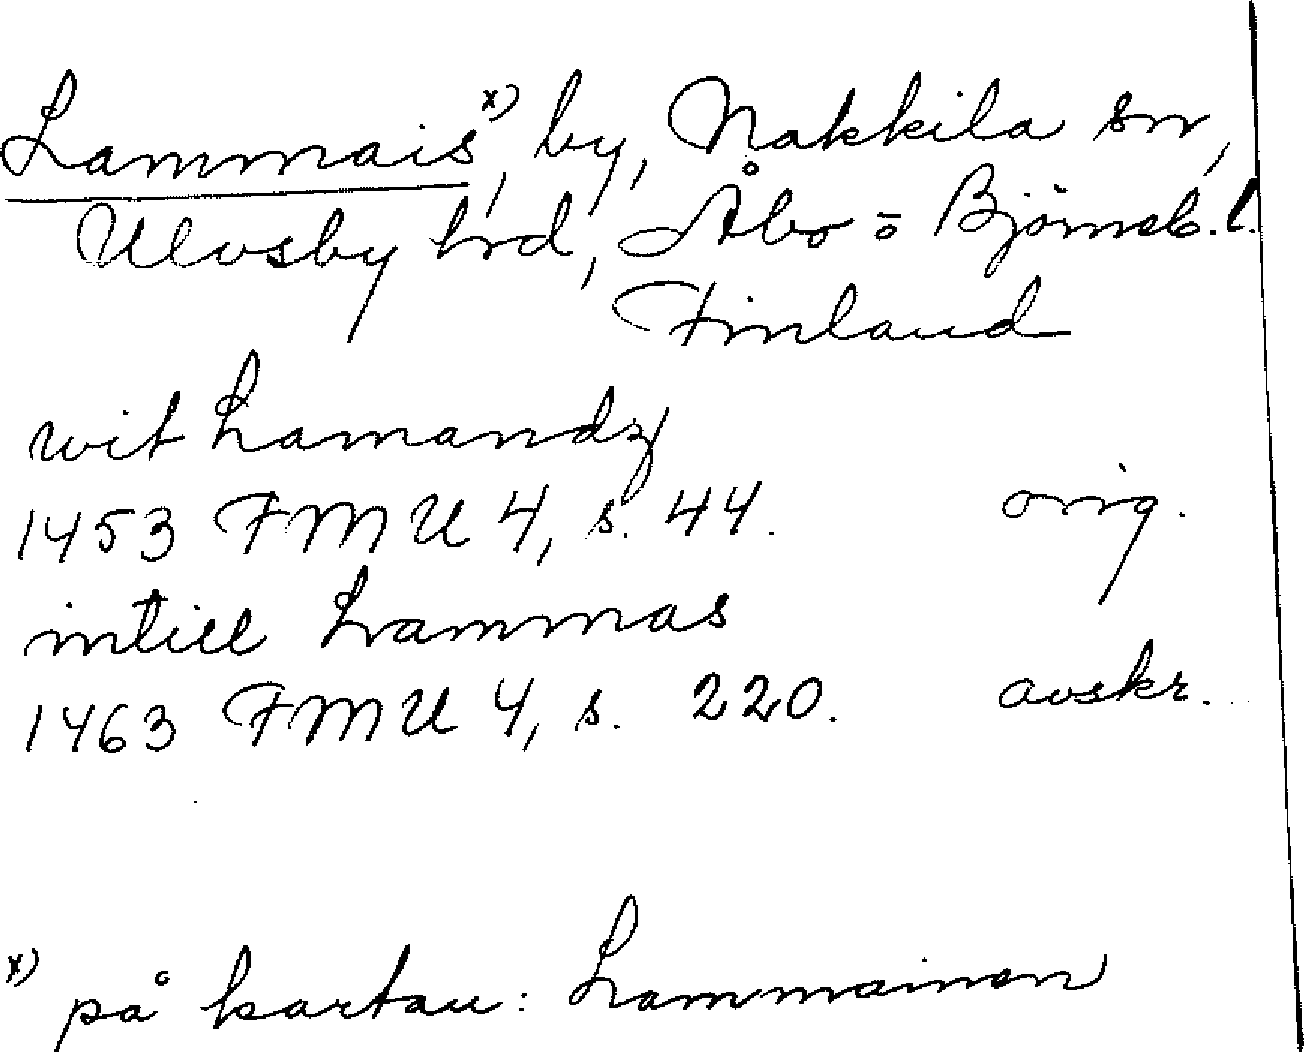 Lammais x), by, Nakkila sn,
Ulvsby hrd, Åbo = o Björneb. l.
Finland
wit Lamandz
1453 FMU 4, s. 44. orig.
intill Lammas
1463 FMU 4, s. 220. avskr.
x) på kartan: Lammainen